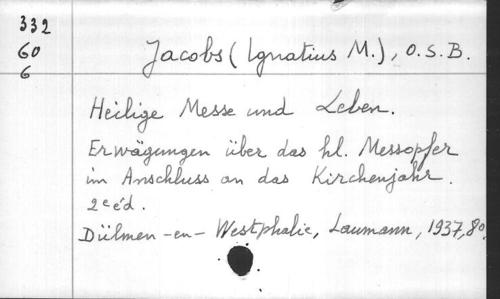 332
60
6
Jacobs (Ignatius M.), O.S.B.
Heilige Messe und Leben.
Erwägungen über das hl. Messopfer
im Anschluss an das Kirchenjahr.
2e éd.
Dülmen-en-Westphalie, Laumann, 1937, 8o.